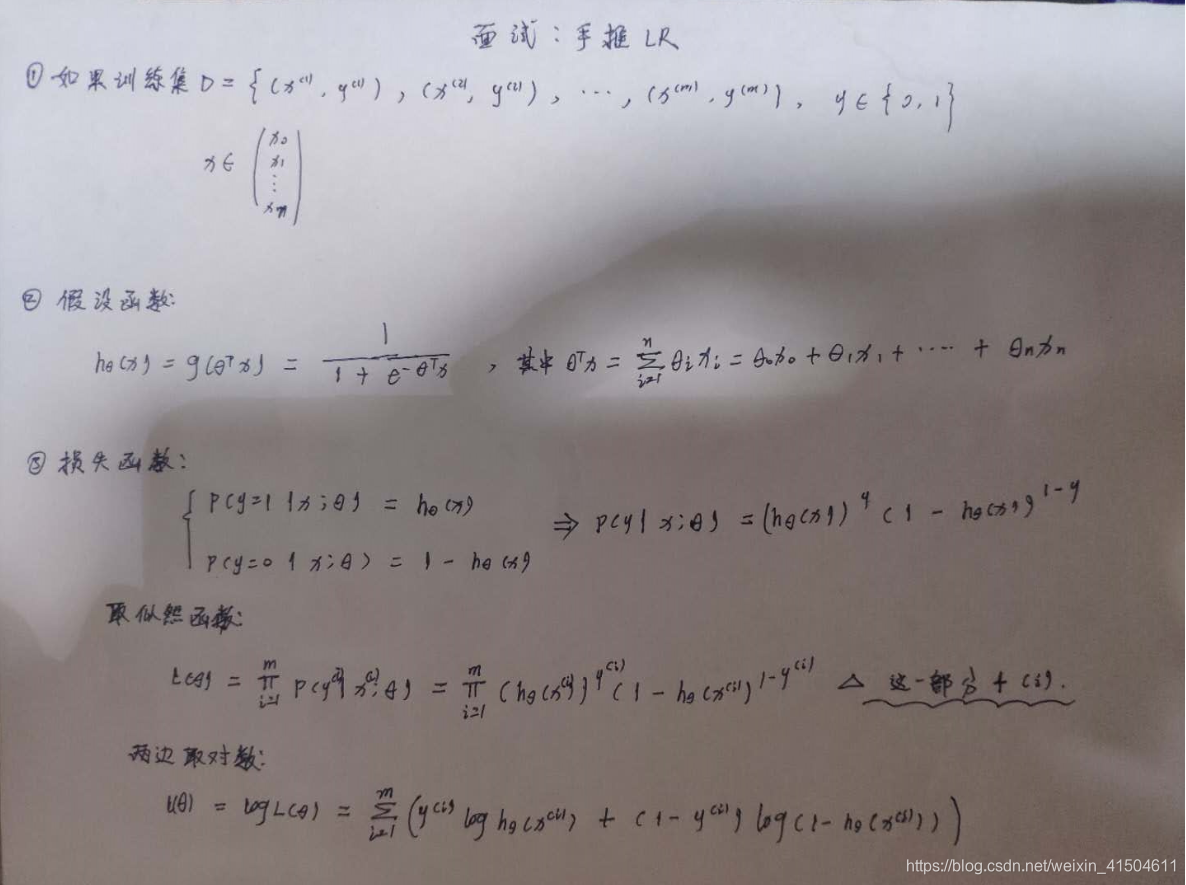 面试：手推 LR
① 如果训练集 D = {(x⁽¹⁾, y⁽¹⁾), (x⁽²⁾, y⁽²⁾), ⋯, (x⁽ᵐ⁾, y⁽ᵐ⁾), y ∈ {0, 1}
x ∈ (x₀
x₁
⋮
xₙ)
② 假设函数:
hθ(x) = g(θᵀx) = 1 / (1 + e^(-θᵀx)) , 其中 θᵀx = ∑_{i=1}^{n} θᵢxᵢ = θ₀x₀ + θ₁x₁ + ⋯⋅ + θₙxₙ
③ 损失函数:
{ P(y=1|x;θ) = hθ(x) ⇒ P(y|x;θ) = (hθ(x))^y (1 - hθ(x))^{1-y}
P(y=0|x;θ) = 1 - hθ(x)
取似然函数:
L(θ) = ∏_{i=1}^{m} P(y⁽ⁱ⁾|x⁽ⁱ⁾;θ) = ∏_{i=1}^{m} (hθ(x⁽ⁱ⁾))^{y⁽ⁱ⁾} (1 - hθ(x⁽ⁱ⁾))^{1-y⁽ⁱ⁾} △ 这一部分 + (i).
两边取对数:
l(θ) = log L(θ) = ∑_{i=1}^{m} (y⁽ⁱ⁾ log hθ(x⁽ⁱ⁾) + (1 - y⁽ⁱ⁾) log(1 - hθ(x⁽ⁱ⁾)))
https://blog.csdn.net/weixin_41504611